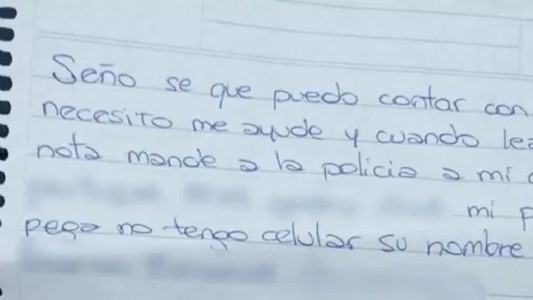 Seño se que puedo contar con
necesito me ayude y cuando
nota mande a la policia a mi
mi
pega no tengo celular su nombre